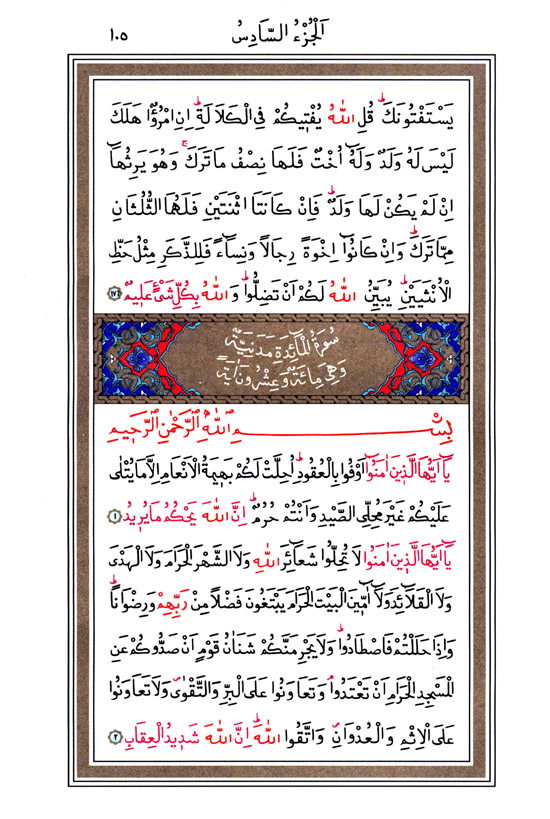 اَلْجُزْءُ السَّادِسُ ١٠٥
يَسْتَفْتُونَكَۜ قُلِ اللّٰهُ يُفْتٖيكُمْ فِي الْكَلَالَةِۜ اِنِ امْرُؤٌا هَلَكَ
لَيْسَ لَهُ وَلَدٌ وَلَهُٓ اُخْتٌ فَلَهَا نِصْفُ مَا تَرَكَۚ وَهُوَ يَرِثُهَٓا
اِنْ لَمْ يَكُنْ لَهَا وَلَدٌۜ فَاِنْ كَانَتَا اثْنَتَيْنِ فَلَهُمَا الثُّلُثَانِ
مِمَّا تَرَكَۜ وَاِنْ كَانُٓوا اِخْوَةً رِجَالًا وَنِسَٓاءً فَلِلذَّكَرِ مِثْلُ حَظِّ
الْاُنْثَيَيْنِۜ يُبَيِّنُ اللّٰهُ لَكُمْ اَنْ تَضِلُّواۜ وَاللّٰهُ بِكُلِّ شَيْءٍ عَلٖيمٌ ١٧٦
سُورَةُ الْمَٓائِدَةِ مَدَنِيَّةٌ
وَهِيَ مِائَةٌ وَعِشْرُونَ اٰيَةً
بِسْمِ اللّٰهِ الرَّحْمٰنِ الرَّحٖيمِ
يَٓا اَيُّهَا الَّذٖينَ اٰمَنُٓوا اَوْفُوا بِالْعُقُودِۜ اُحِلَّتْ لَكُمْ بَهٖيمَةُ الْاَنْعَامِ اِلَّا مَا يُتْلٰى
عَلَيْكُمْ غَيْرَ مُحِلِّي الصَّيْدِ وَاَنْتُمْ حُرُمٌۜ اِنَّ اللّٰهَ يَحْكُمُ مَا يُرٖيدُ ١
يَٓا اَيُّهَا الَّذٖينَ اٰمَنُوا لَا تُحِلُّوا شَعَٓائِرَ اللّٰهِ وَلَا الشَّهْرَ الْحَرَامَ وَلَا الْهَدْيَ
وَلَا الْقَلَٓائِدَ وَلَٓا اٰمّٖينَ الْبَيْتَ الْحَرَامَ يَبْتَغُونَ فَضْلًا مِنْ رَبِّهِمْ وَرِضْوَانًاۜ
وَاِذَا حَلَلْتُمْ فَاصْطَادُواۜ وَلَا يَجْرِمَنَّكُمْ شَنَاٰنُ قَوْمٍ اَنْ صَدُّوكُمْ عَنِ
الْمَسْجِدِ الْحَرَامِ اَنْ تَعْتَدُواۢ وَتَعَاوَنُوا عَلَى الْبِرِّ وَالتَّقْوٰىۖ وَلَا تَعَاوَنُوا
عَلَى الْاِثْمِ وَالْعُدْوَانِۖ وَاتَّقُوا اللّٰهَۜ اِنَّ اللّٰهَ شَدٖيدُ الْعِقَابِ ٢